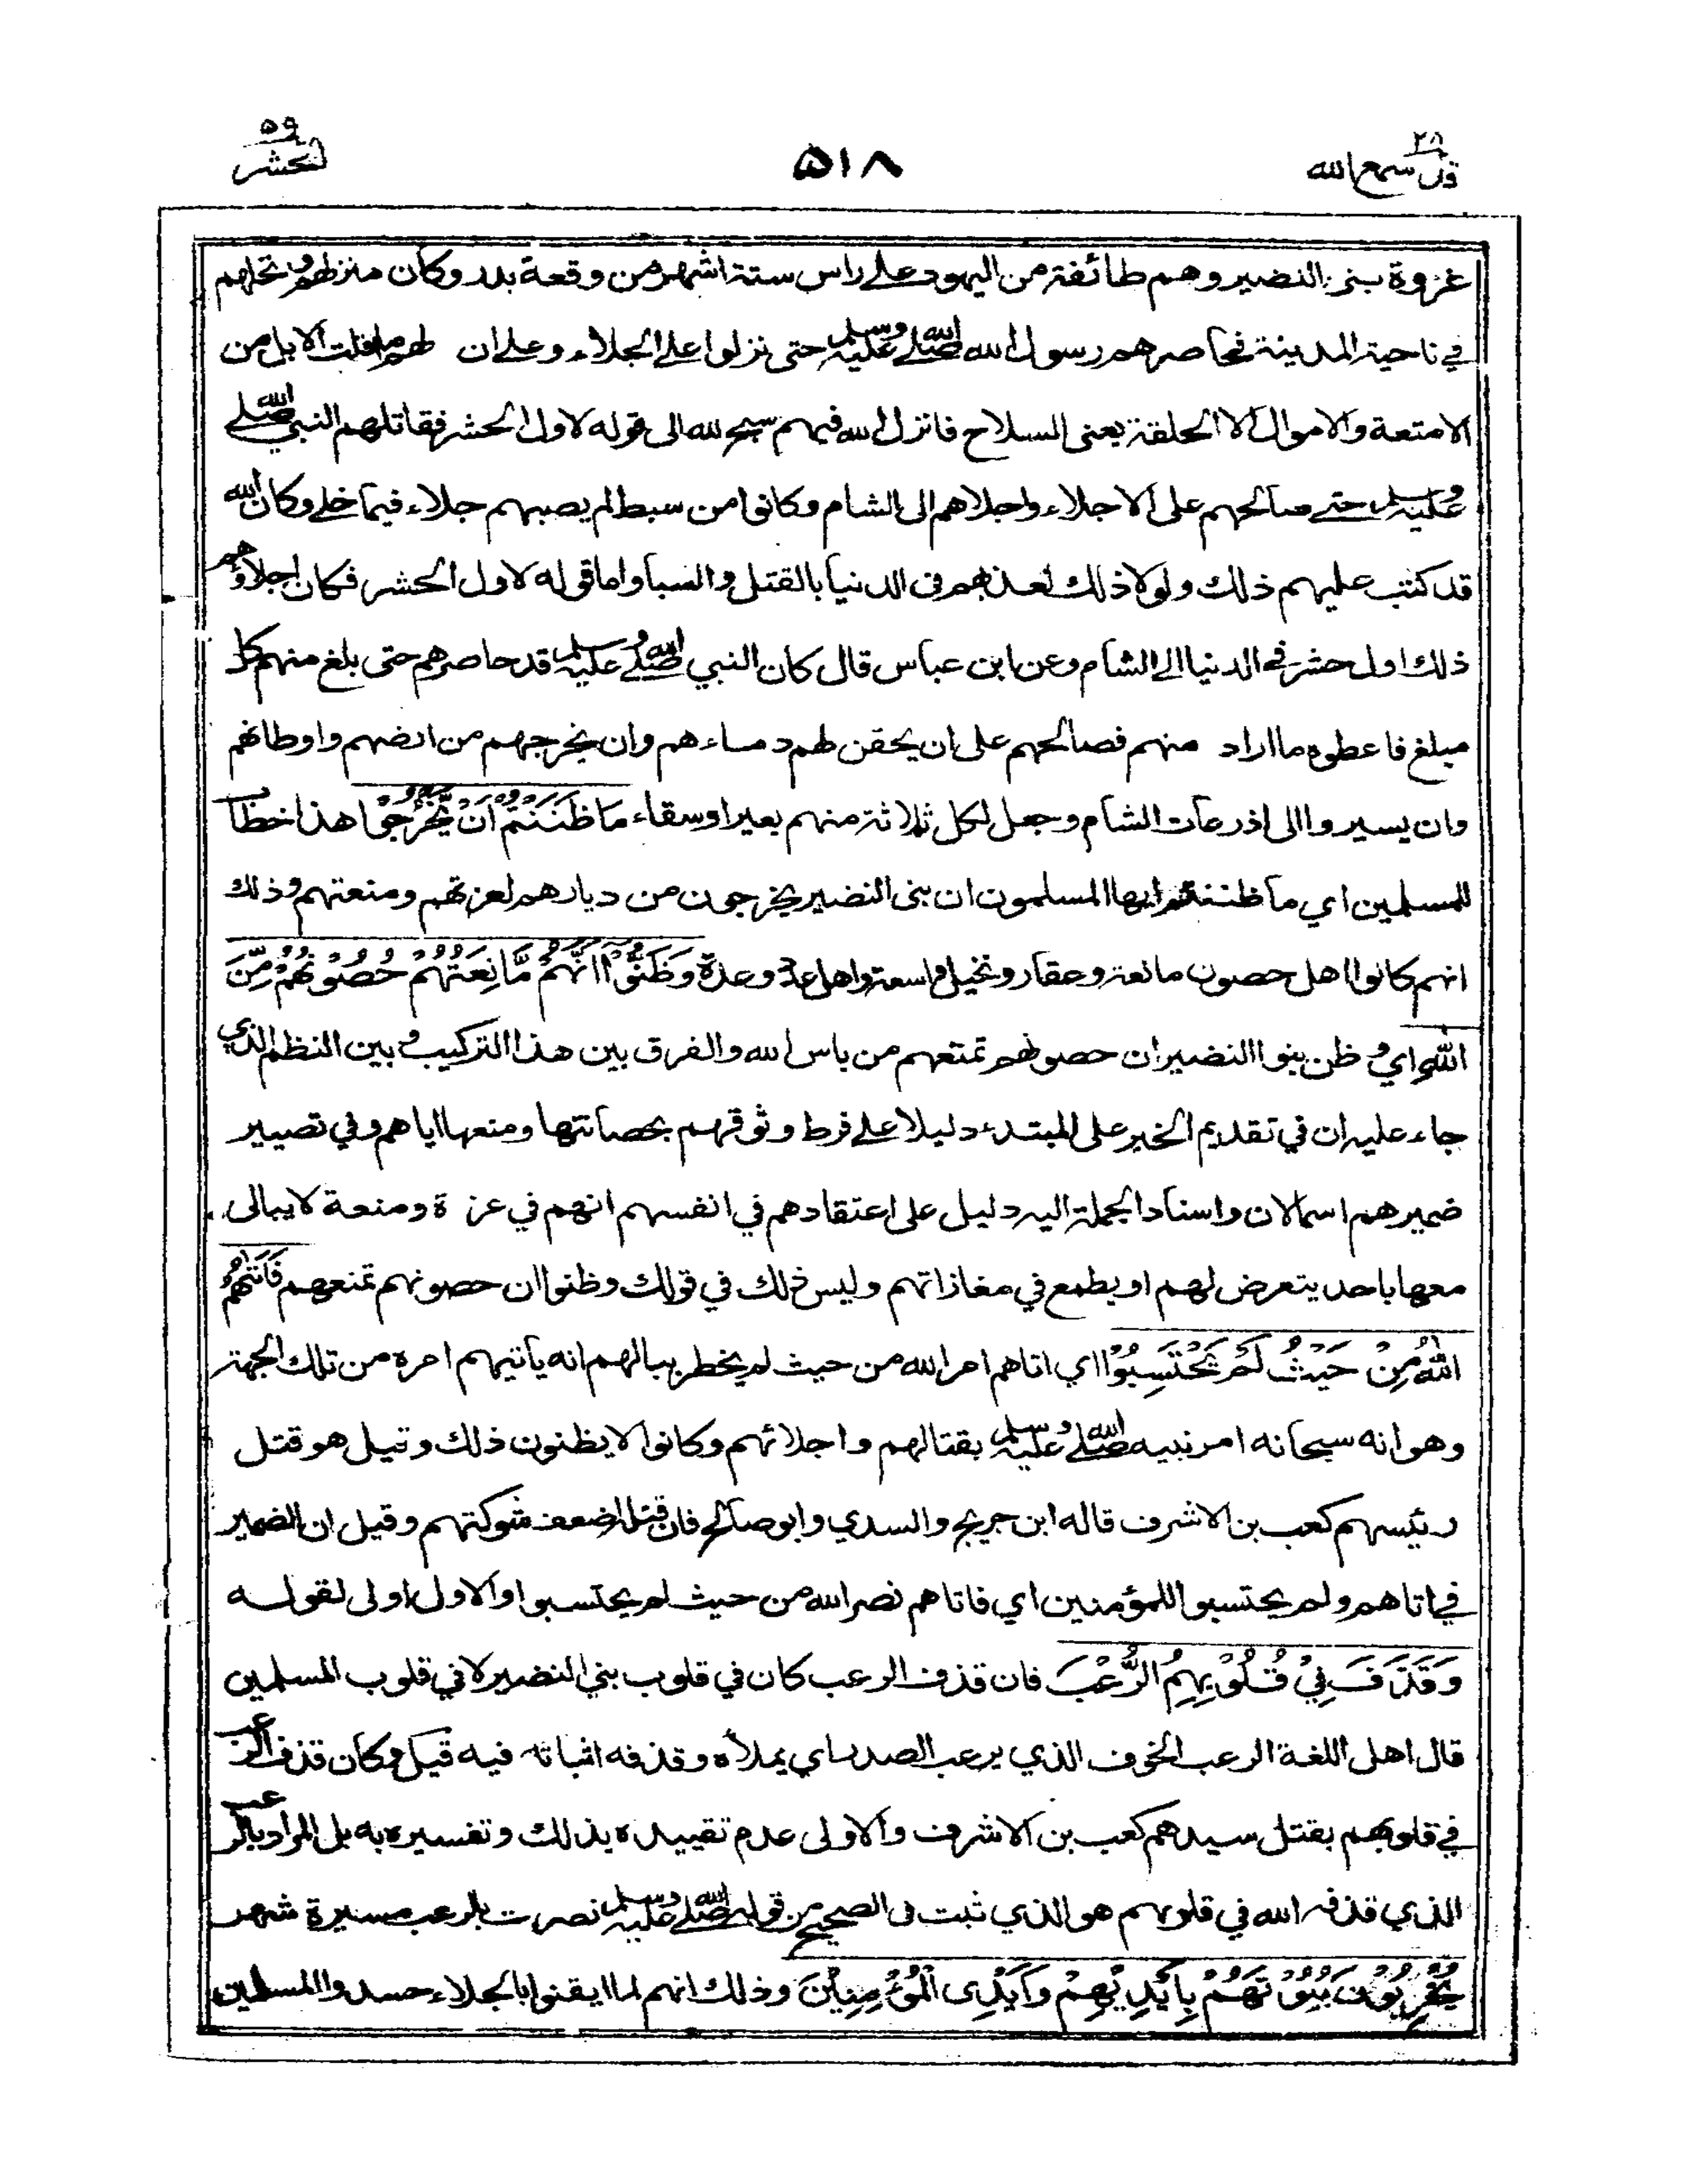 ٢٨
قد سمع الله
٥١٨
٥٩
الحشر
غزوة بني النضير وهم طائفة من اليهود على راس ستة اشهر من وقعة بدر وكان منزلهم ونخلهم
في ناحية المدينة فحاصرهم رسول الله صلى الله عليه وسلم حتى نزلوا على الجلاء وعلى ان لهم ما اقلت الابل من
الامتعة والاموال الا الحلقة يعني السلاح فانزل الله فيهم سبح لله الى قوله لاول الحشر فقاتلهم النبي صلى الله
عليه وسلم حتى صالحهم على الاجلاء واجلاهم الى الشام وكانوا من سبط لم يصبهم جلاء فيما خلى وكان الله
قد كتب عليهم ذلك ولولا ذلك لعذبهم في الدنيا بالقتل والسبا واما قوله لاول الحشر فكان اجلاؤهم
ذلك اول حشر في الدنيا الى الشام وعن ابن عباس قال كان النبي صلى الله عليه وسلم قد حاصرهم حتى بلغ منهم كل
مبلغ فاعطوه ما اراد منهم فصالحهم على ان يحقن لهم دماءهم وان يخرجهم من ارضهم واوطانهم
وان يسيروا الى اذرعات الشام وجعل لكل ثلاثة منهم بعيرا وسقاء مَا ظَنَنْتُمْ اَنْ يَّخْرُجُوْا هذا خطاب
للمسلمين اي ما ظننتم ايها المسلمون ان بني النضير يخرجون من ديارهم لعزتهم ومنعتهم وذلك
انهم كانوا اهل حصون مانعة وعقار ونخيل واسعة واهل عدد وعدة وَظَنُّوْا اَنَّهُمْ مَّانِعَتُهُمْ حُصُوْنُهُمْ مِّنَ
اللّٰهِ اي وظن بنوا النضير ان حصونهم تمنعهم من باس الله والفرق بين هذا التركيب وبين النظم الذي
جاء عليه ان في تقديم الخبر على المبتدء دليلا على فرط وثوقهم بحصانتها ومنعها اياهم وفي تصيير
ضميرهم اسما لان واسناد الجملة اليه دليل على اعتقادهم في انفسهم انهم في عزة ومنعة لا يبالى
معها باحد يتعرض لهم او يطمع في مغازاتهم وليس ذلك في قولك وظنوا ان حصونهم تمنعهم فَاَتٰهُمُ
اللّٰهُ مِنْ حَيْثُ لَمْ يَحْتَسِبُوْا اي اتاهم امر الله من حيث لم يخطر ببالهم انه يأتيهم امره من تلك الجهة
وهو انه سبحانه امر نبيه صلى الله عليه وسلم بقتالهم واجلائهم وكانوا لا يظنون ذلك وقيل هو قتل
رئيسهم كعب بن الاشرف قاله ابن جريج والسدي وابو صالح فان قتله اضعف شوكتهم وقيل ان الضمير
في اتاهم ولم يحتسبوا للمؤمنين اي فاتاهم نصر الله من حيث لم يحتسبوا والاول اولى لقوله
وَقَذَفَ فِيْ قُلُوْبِهِمُ الرُّعْبَ فان قذف الرعب كان في قلوب بني النضير لا في قلوب المسلمين
قال اهل اللغة الرعب الخوف الذي يرعب الصدر اي يملأه وقذفه اثباته فيه قيل وكان قذف الرعب
في قلوبهم بقتل سيدهم كعب بن الاشرف والاولى عدم تقييده بذلك وتفسيره به بل المراد بالرعب
الذي قذفه الله في قلوبهم هو الذي ثبت في الصحيح من قوله صلى الله عليه وسلم نصرت بالرعب مسيرة شهر
يُخْرِبُوْنَ بُيُوْتَهُمْ بِاَيْدِيْهِمْ وَاَيْدِى الْمُؤْمِنِيْنَ وذلك انهم لما ايقنوا بالجلاء حسدوا المسلمين